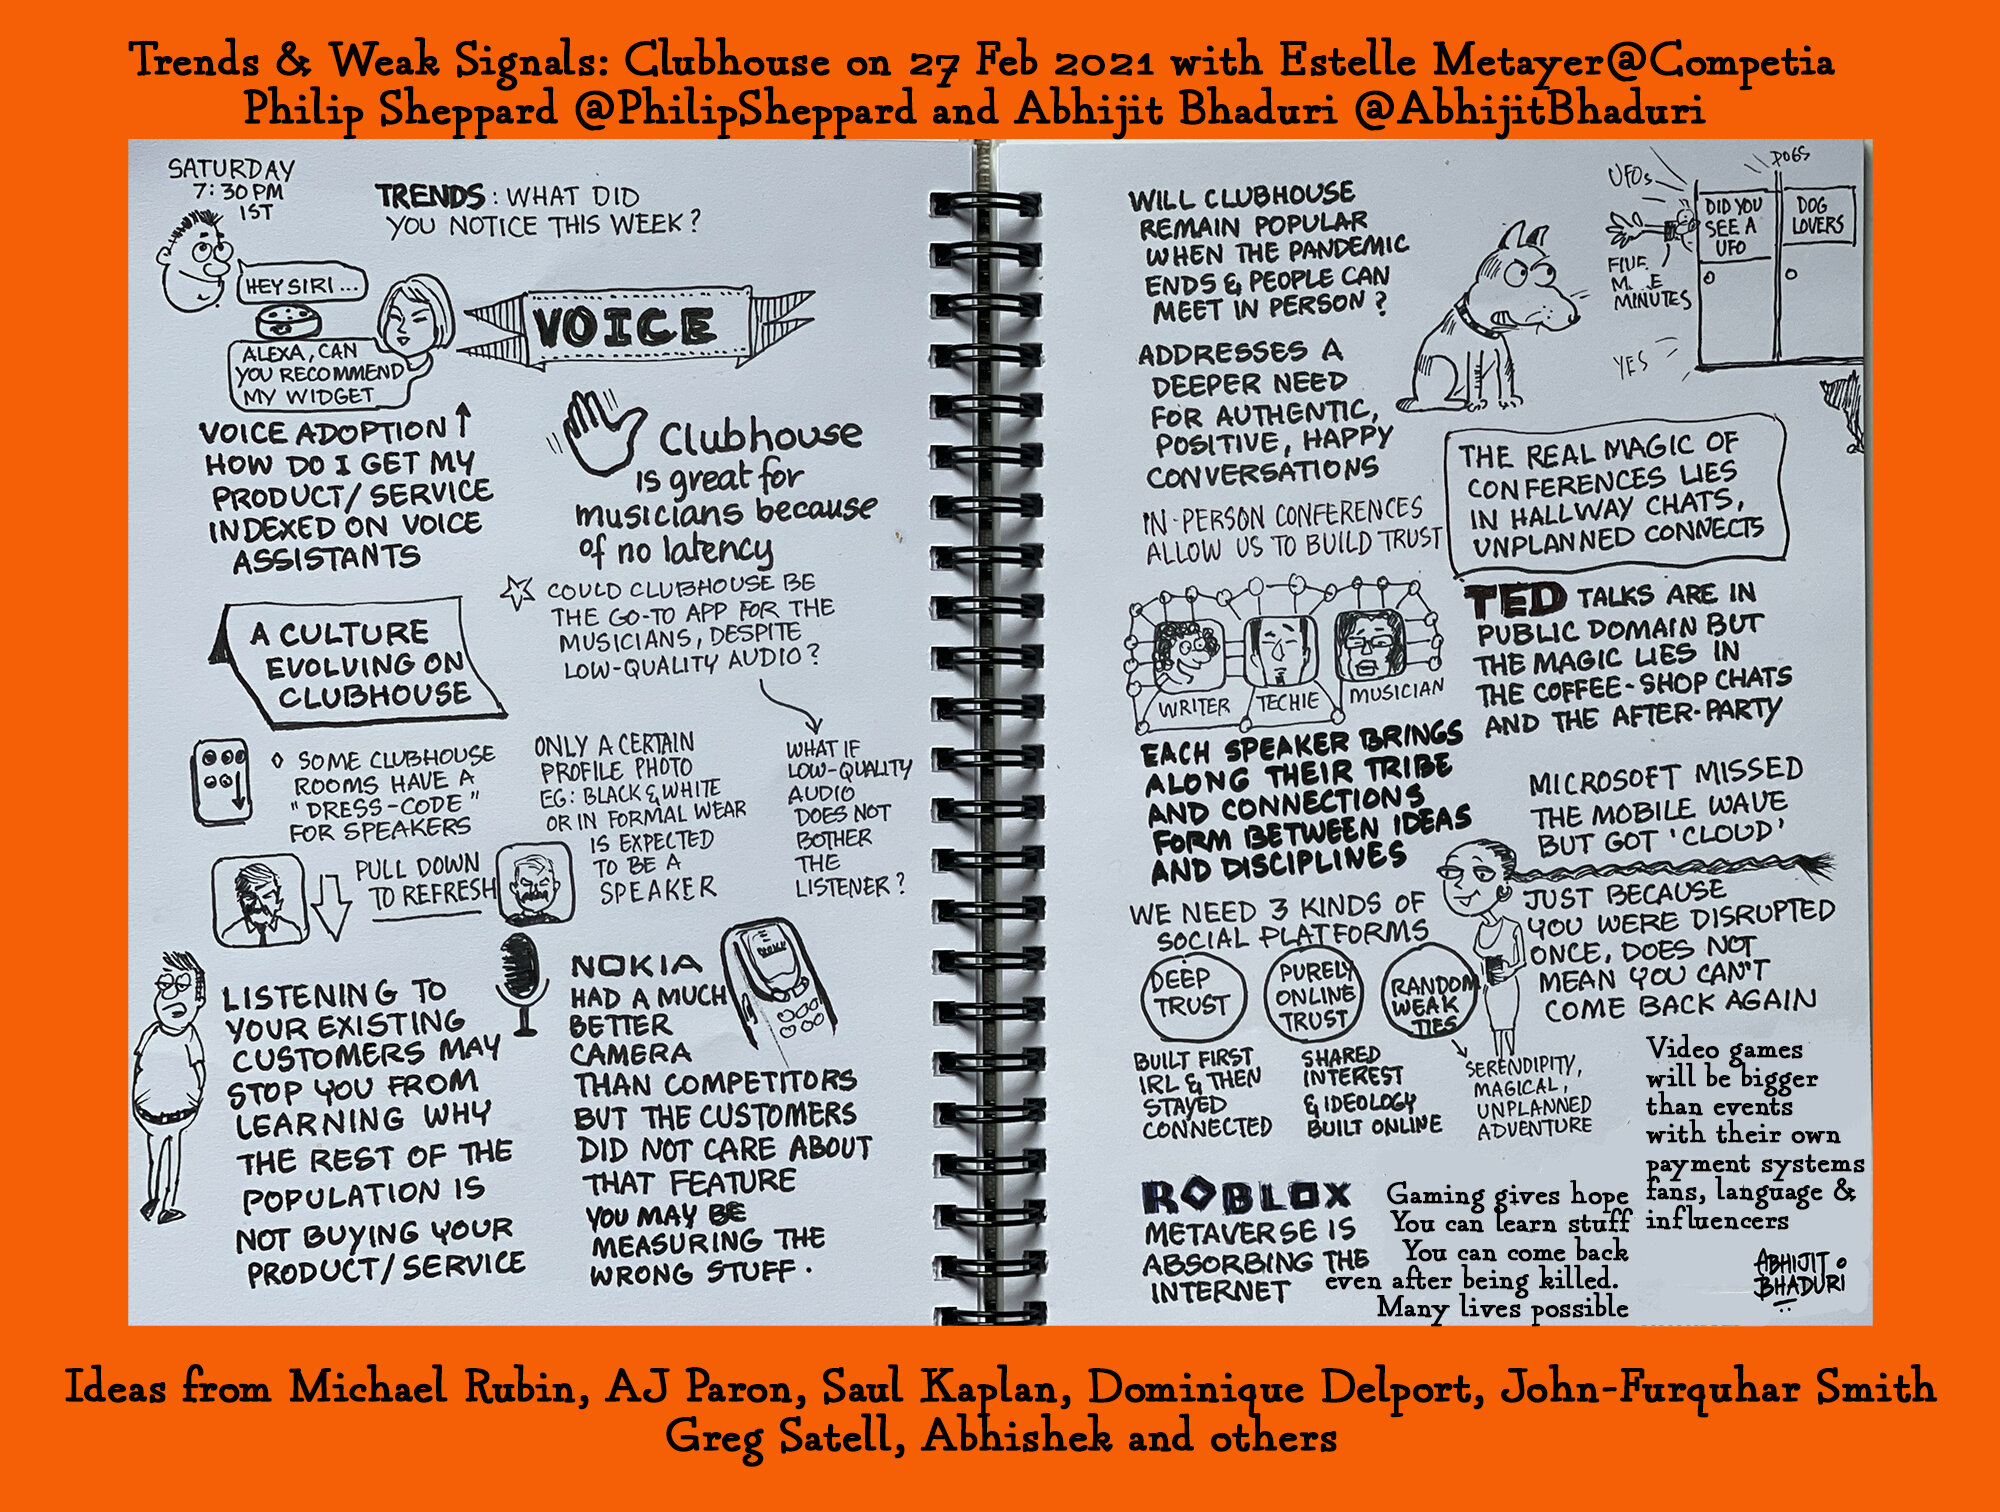 Trends & Weak Signals: Clubhouse on 27 Feb 2021 with Estelle Metayer@Competia
Philip Sheppard @PhilipSheppard and Abhijit Bhaduri @AbhijitBhaduri
SATURDAY
7:30 PM
IST
TRENDS: WHAT DID
YOU NOTICE THIS WEEK?
HEY SIRI ...
ALEXA, CAN
YOU RECOMMEND
MY WIDGET
VOICE
VOICE ADOPTION ↑
HOW DO I GET MY
PRODUCT/ SERVICE
INDEXED ON VOICE
ASSISTANTS
Clubhouse
is great for
musicians because
of no latency
COULD CLUBHOUSE BE
THE GO-TO APP FOR THE
MUSICIANS, DESPITE
LOW-QUALITY AUDIO?
WHAT IF
LOW-QUALITY
AUDIO
DOES NOT
BOTHER
THE
LISTENER?
A CULTURE
EVOLVING ON
CLUBHOUSE
◊ SOME CLUBHOUSE
ROOMS HAVE A
"DRESS-CODE"
FOR SPEAKERS
PULL DOWN
TO REFRESH
ONLY A CERTAIN
PROFILE PHOTO
EG: BLACK & WHITE
OR IN FORMAL WEAR
IS EXPECTED
TO BE A
SPEAKER
LISTENING TO
YOUR EXISTING
CUSTOMERS MAY
STOP YOU FROM
LEARNING WHY
THE REST OF THE
POPULATION IS
NOT BUYING YOUR
PRODUCT/SERVICE
NOKIA
HAD A MUCH
BETTER
CAMERA
THAN COMPETITORS
BUT THE CUSTOMERS
DID NOT CARE ABOUT
THAT FEATURE
YOU MAY BE
MEASURING THE
WRONG STUFF.
WILL CLUBHOUSE
REMAIN POPULAR
WHEN THE PANDEMIC
ENDS & PEOPLE CAN
MEET IN PERSON?
ADDRESSES A
DEEPER NEED
FOR AUTHENTIC,
POSITIVE, HAPPY
CONVERSATIONS
IN-PERSON CONFERENCES
ALLOW US TO BUILD TRUST
UFOs
DOGS
DID YOU
SEE A
UFO
DOG
LOVERS
FIVE
MINUTES
YES
THE REAL MAGIC OF
CONFERENCES LIES
IN HALLWAY CHATS,
UNPLANNED CONNECTS
WRITER
TECHIE
MUSICIAN
EACH SPEAKER BRINGS
ALONG THEIR TRIBE
AND CONNECTIONS
FORM BETWEEN IDEAS
AND DISCIPLINES
TED TALKS ARE IN
PUBLIC DOMAIN BUT
THE MAGIC LIES IN
THE COFFEE-SHOP CHATS
AND THE AFTER-PARTY
MICROSOFT MISSED
THE MOBILE WAVE
BUT GOT 'CLOUD'
JUST BECAUSE
YOU WERE DISRUPTED
ONCE, DOES NOT
MEAN YOU CAN'T
COME BACK AGAIN
WE NEED 3 KINDS OF
SOCIAL PLATFORMS
DEEP
TRUST
PURELY
ONLINE
TRUST
RANDOM
WEAK
TIES
BUILT FIRST
IRL & THEN
STAYED
CONNECTED
SHARED
INTEREST
& IDEOLOGY
BUILT ONLINE
SERENDIPITY,
MAGICAL,
UNPLANNED
ADVENTURE
ROBLOX
METAVERSE IS
ABSORBING THE
INTERNET
Gaming gives hope
You can learn stuff
You can come back
even after being killed.
Many lives possible
Video games
will be bigger
than events
with their own
payment systems
fans, language &
influencers
ABHIJIT
BHADURI
Ideas from Michael Rubin, AJ Paron, Saul Kaplan, Dominique Delport, John-Furquhar Smith
Greg Satell, Abhishek and others